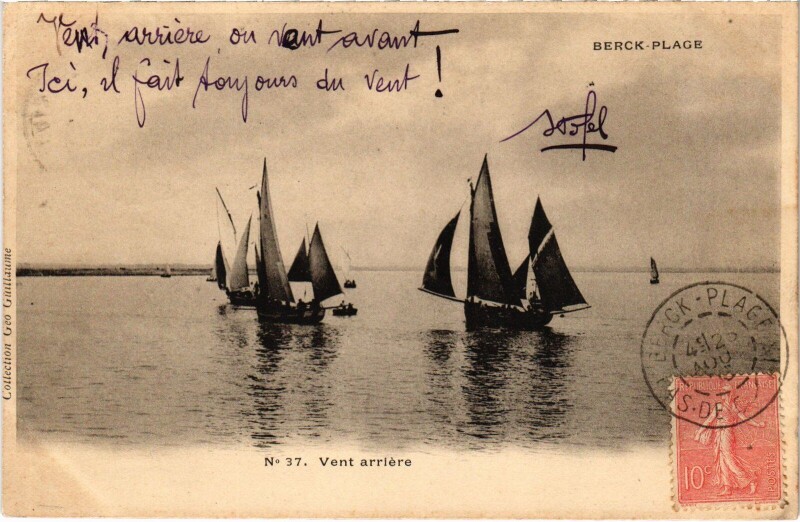 Vent, arrière ou vent avant
Ici, il fait toujours du vent !
BERCK-PLAGE
Collection Géo Guillaume
BERCK-PLAGE
AOU
PAS-DE-C
RÉPUBLIQUE FRANÇAISE
10c
POSTES
No 37. Vent arrière